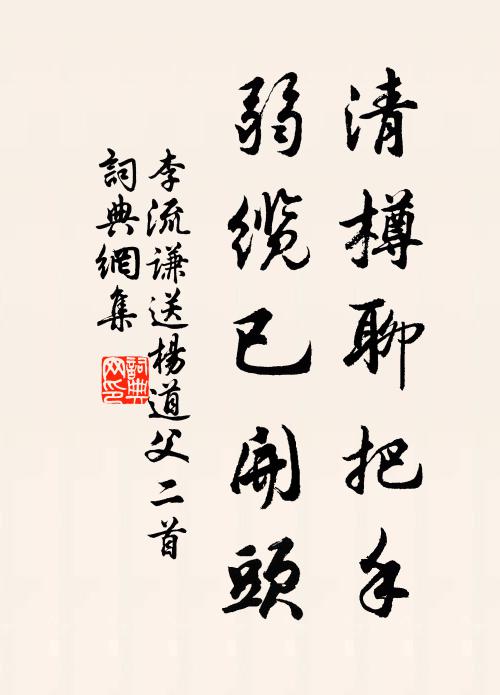 清樽聊把手
弱纜已開頭
李流謙送楊道父二首
詞典網集
詞典網印